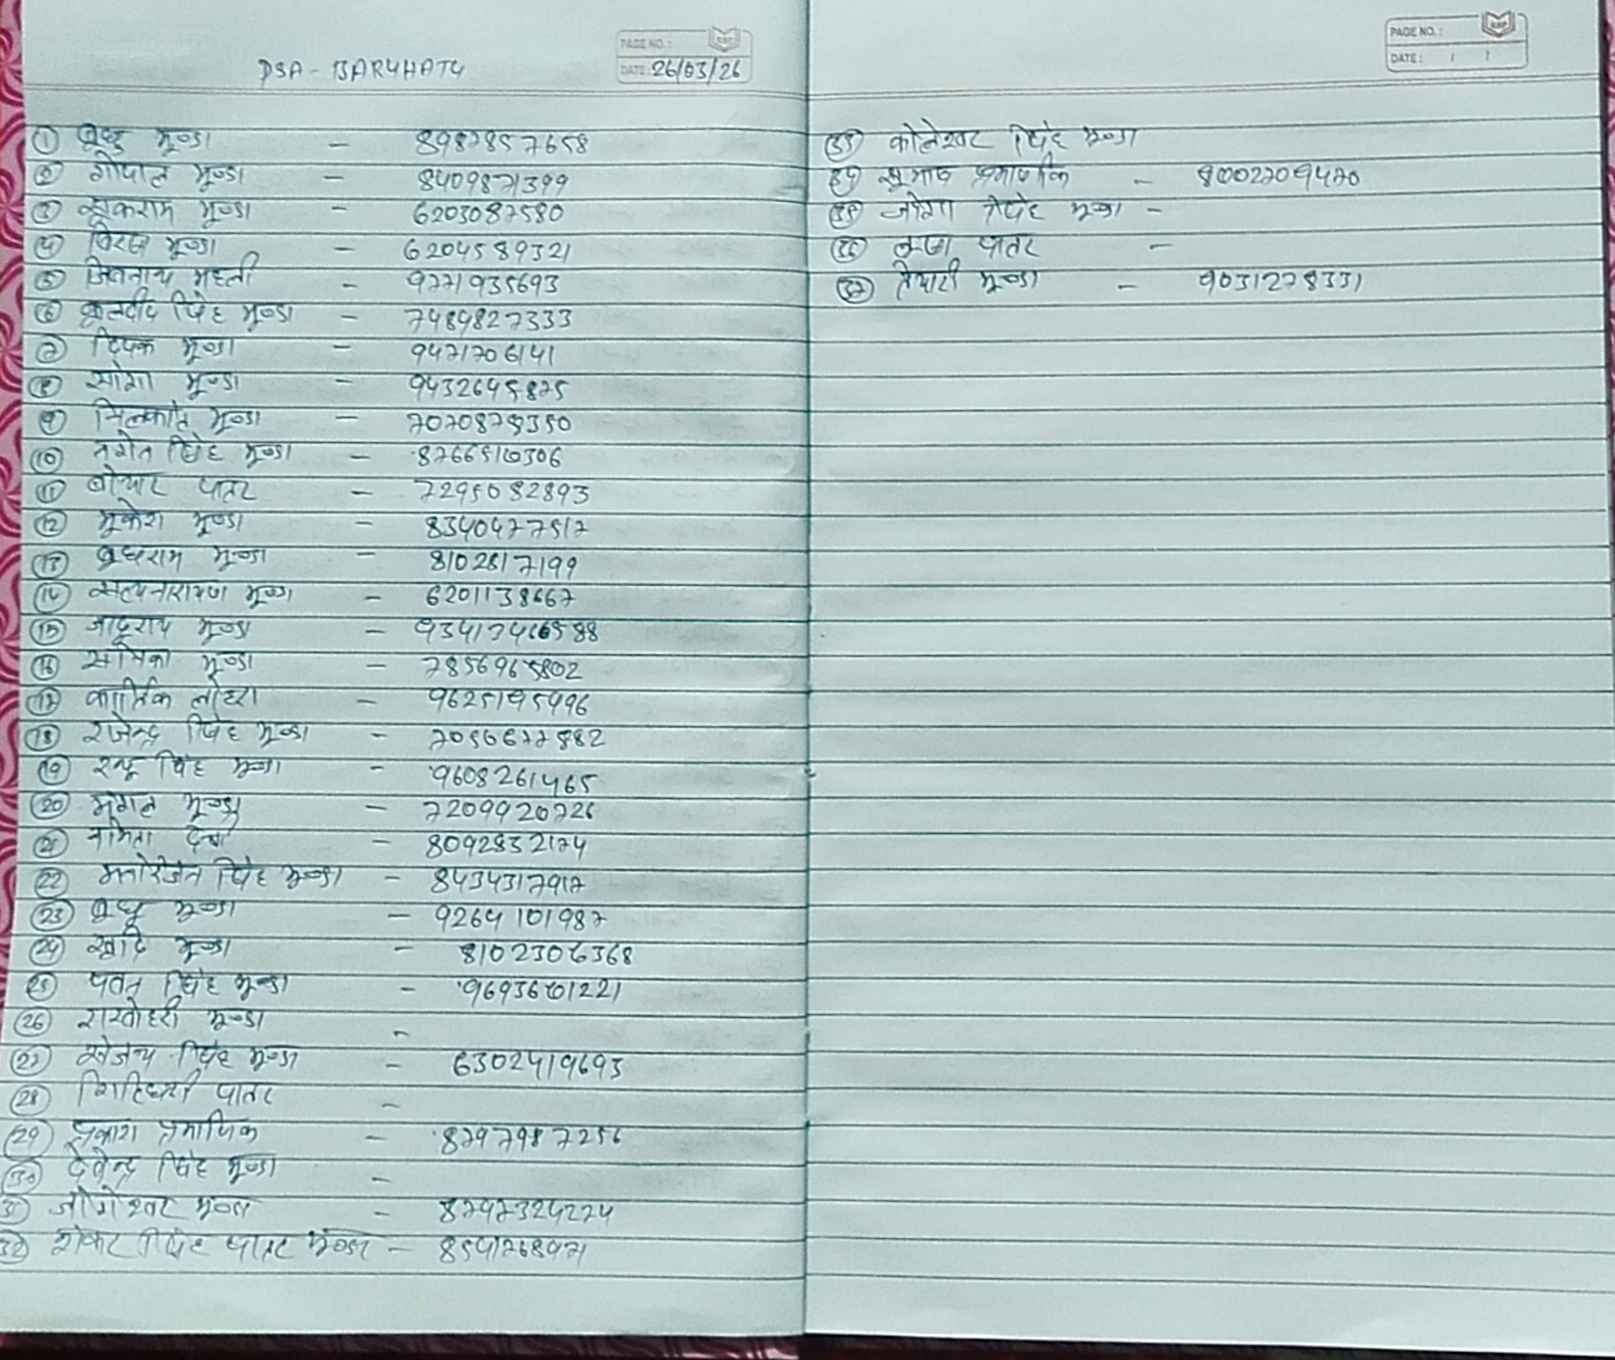 PSA - BARUHATU
PAGE NO.:
DATE: 26/03/26
① बुधु मुण्डा - 8987857658
② गोपाल मुण्डा - 8409871399
③ सुकराम मुण्डा - 6203087580
④ विरसा मुण्डा - 6204589321
⑤ महली - 9771935693
⑥ कुलदीप सिंह मुण्डा - 7489827333
⑦ दिपक मुण्डा - 9471706141
⑧ सोमा मुण्डा - 9432645875
⑨ मुण्डा - 7070878350
⑩ सिंह मुण्डा - 8766510306
⑪ पातर - 7295082893
⑫ मुकेश मुण्डा - 8340477517
⑬ बुधराम मुण्डा - 8102817199
⑭ सत्यनारायण मुण्डा - 6201138667
⑮ जादुराय मुण्डा -
⑯ मुण्डा - 7856965802
⑰ कार्तिक लोहरा - 9625195996
⑱ राजेन्द्र सिंह मुण्डा - 7056677882
⑲ सिंह मुण्डा - 9608261465
⑳ मंगल मुण्डा - 7209920726
㉑ नमिता देवी - 8092832174
㉒ मनोरंजन सिंह मुण्डा - 8434317917
㉓ बुधु मुण्डा - 9264101987
㉔ मुण्डा - 8102306368
㉕ पवन सिंह मुण्डा - 9693601221
㉖ राखोहरी मुण्डा -
㉗ सिंह मुण्डा - 6302419693
㉘ गिरिधारी पातर -
㉙ प्रकाश प्रमाणिक - 8797987256
㉚ देवेन्द्र सिंह मुण्डा -
㉛ जोगेश्वर मुण्डा - 8797324274
㉜ शंकर सिंह पातर मुण्डा - 8541768971
PAGE NO.:
DATE: / /
㉝ कोलेश्वर सिंह मुण्डा
㉞ सुभाष प्रमाणिक - 8002709470
㉟ सिंह मुण्डा -
㊱ पातर -
㊲ मुण्डा - 9031278331